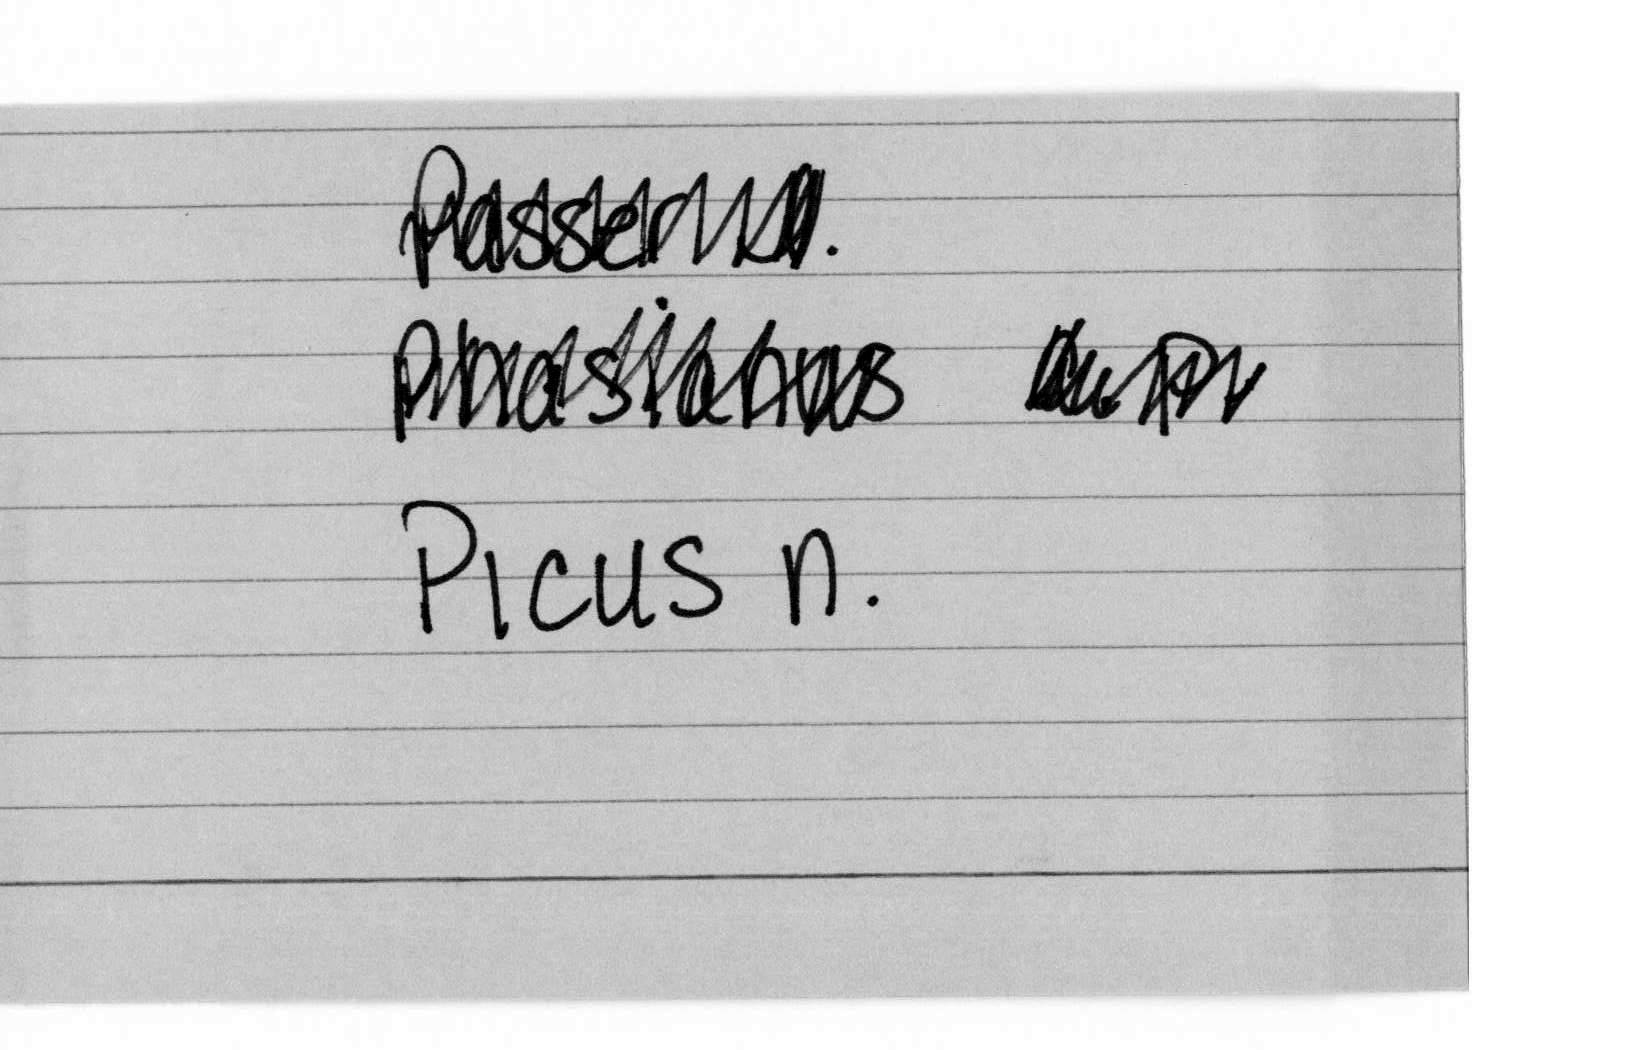 Passer
Phasianus
Picus n.